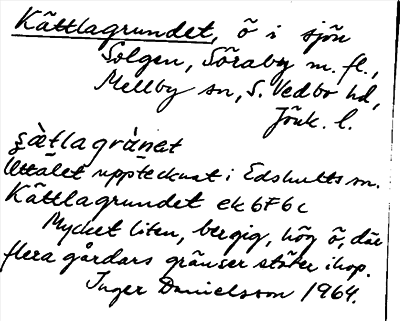 Kättlagrundet, ö i sjön
Solgen, Söraby m. fl.,
Mellby sn, S. Vedbo hd,
Jönk. l.
Uttalet upptecknat i Edshults sn.
Kättlagrundet ek 6F6c
Mycket liten, bergig, hög ö, där
flera gårdars gränser stöter ihop.
Inger Danielsson 1964.